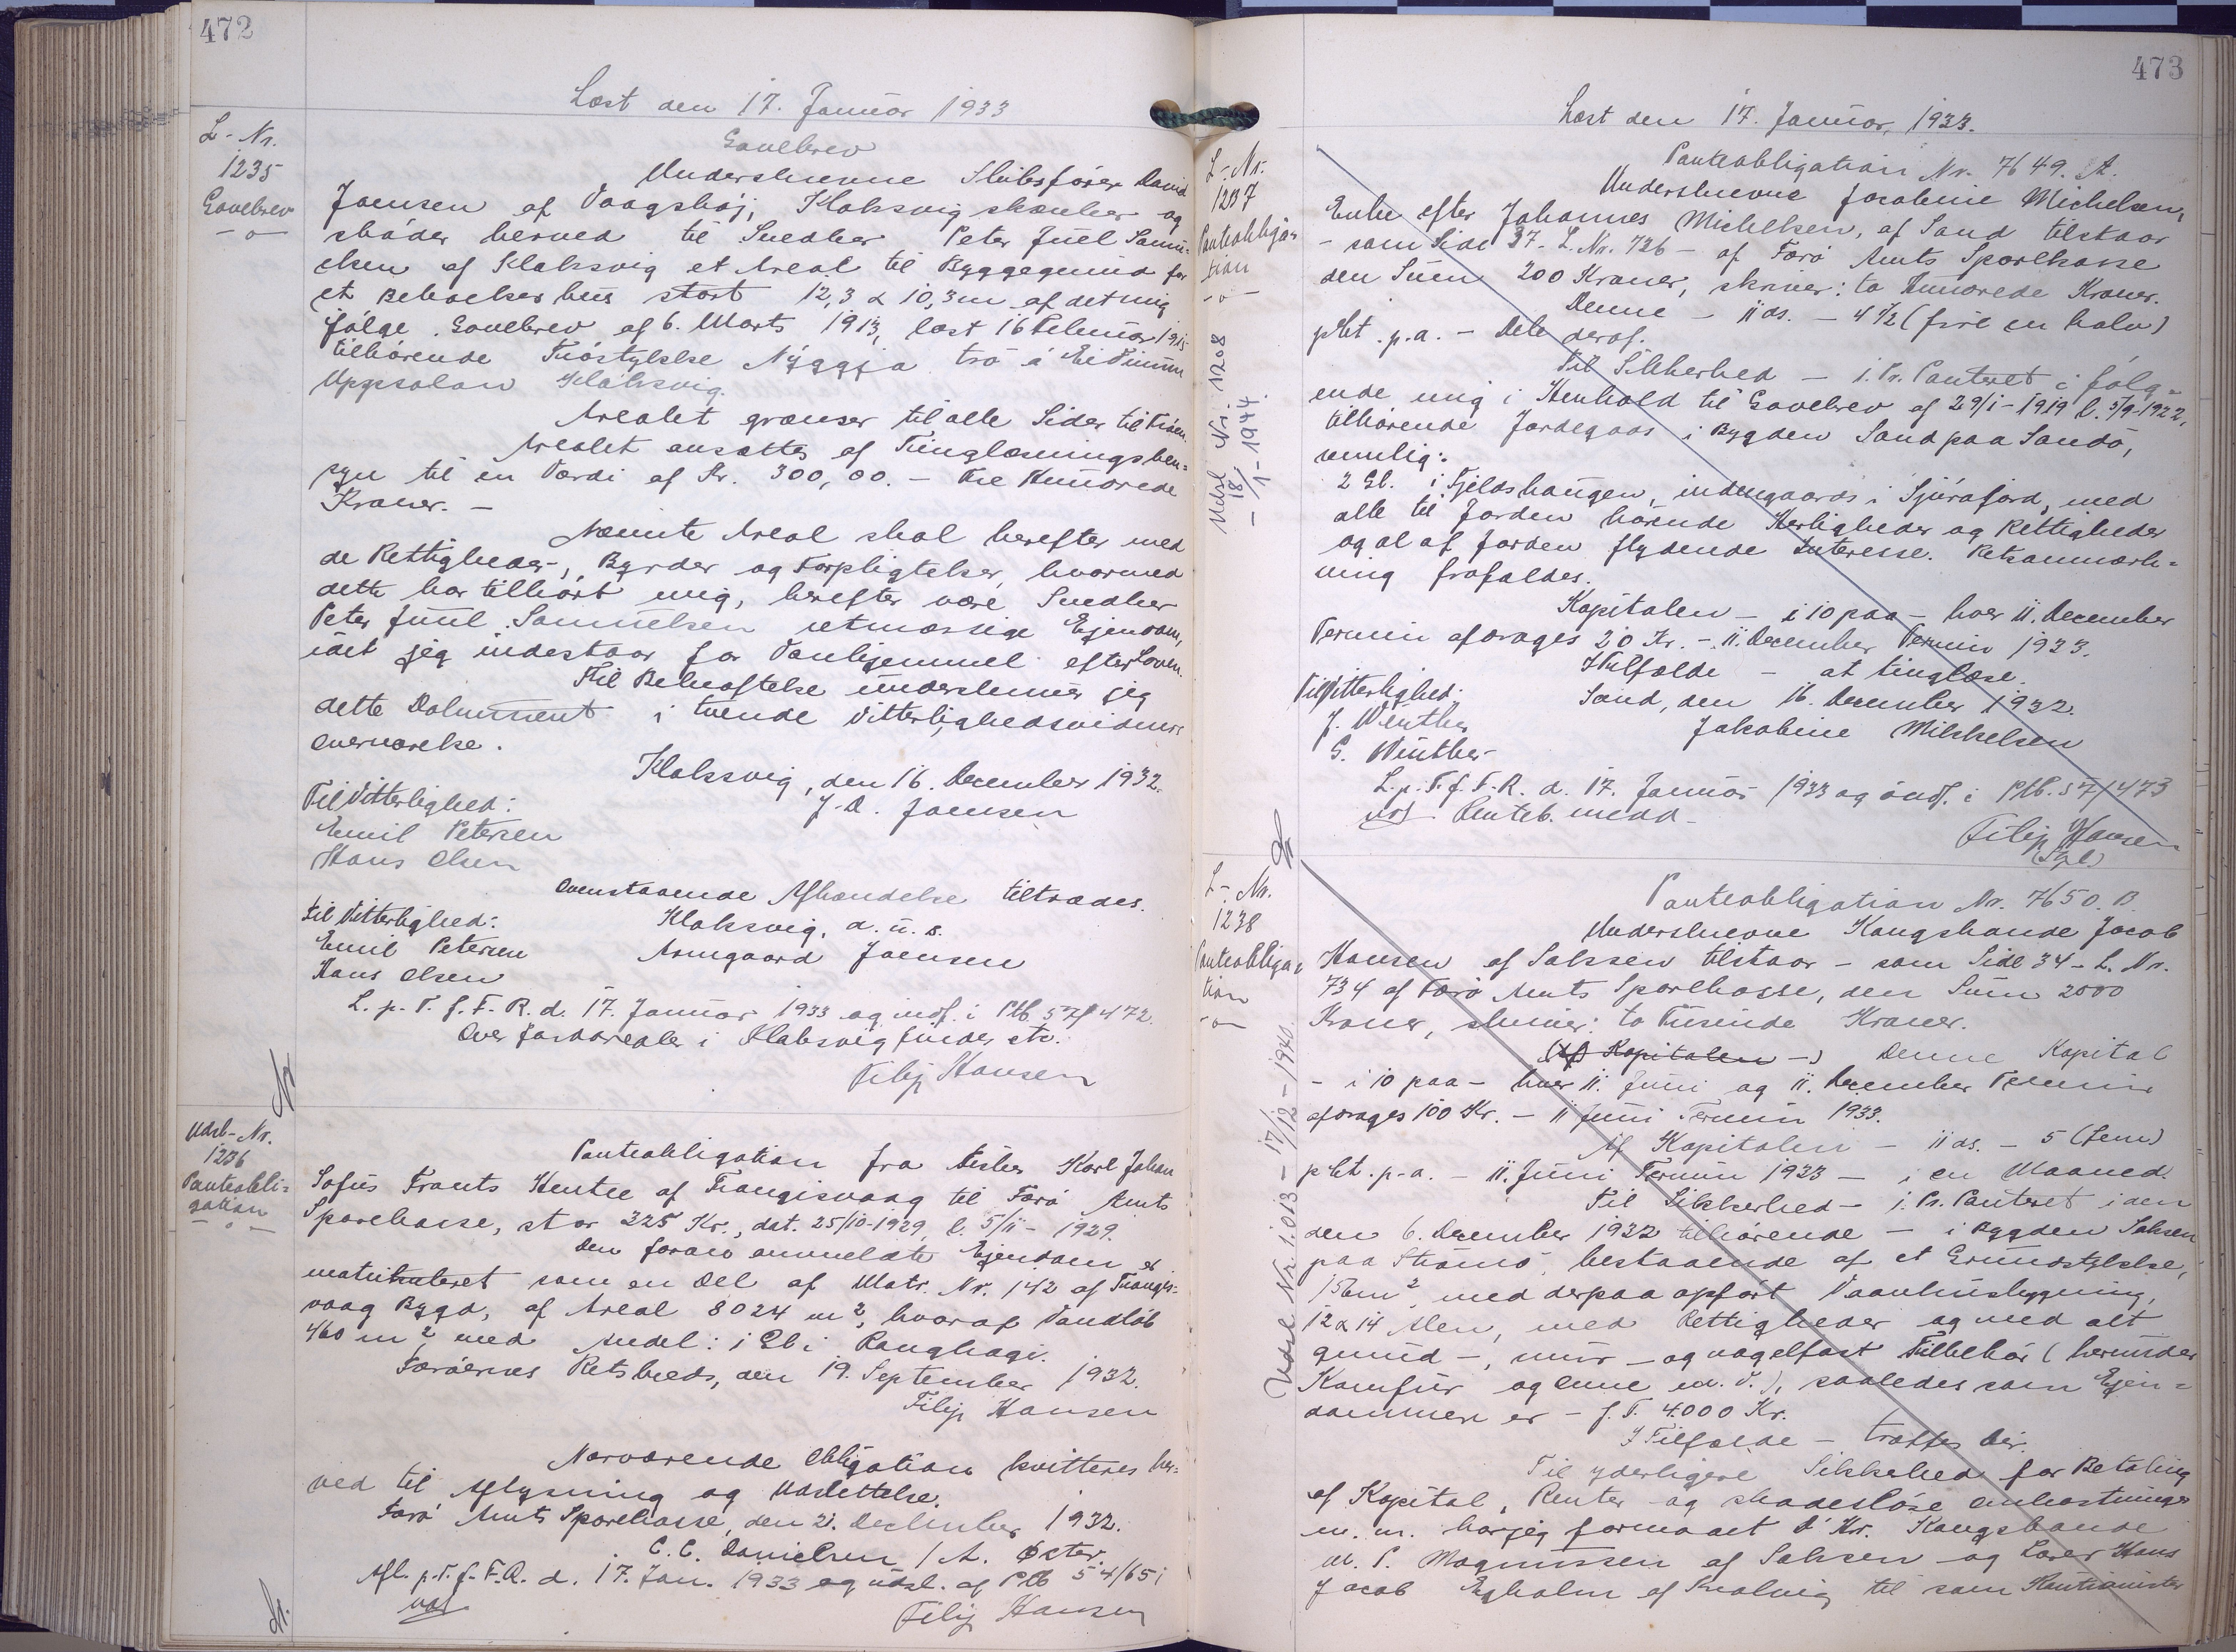 472
Læst den 17. Januar 1933
L-Nr.
1235
Gavebrev
-o-
Gavebrev
Underskrevne Skibsfører David
Joensen af Vaagshøj, Klaksvig skænker og
skøder herved til Snedker Peter Juul Samu-
elsen af Klaksvig et Areal til Byggegrund for
et Beboelseshus stort 12,3 x 10,3 m af det mig
ifølge Gavebrev af 6. Marts 1913, læst 16 Februar 1915
tilhørende Trøstykke Nýggja trø á Ei
Uppsalan Klaksvig.
Arealet grænser til alle Sider til Trøen.
Arealet ansættes af Tinglæsningshen-
syn til en Værdi af Kr. 300,00. - Tre Hundrede
Kroner. -
Nævnte Areal skal herefter med
de Rettigheder, Byrder og Forpligtelser, hvormed
dette har tilhørt mig, herefter være Snedker
Peter Juul Samuelsen retmæssige Ejendom,
idet jeg indestaar for Vanhjemmel efter Loven.
Til Bekræftelse underskriver jeg
dette Dokument i tvende Vitterlighedsvidners
Overværelse.
Klaksvig, den 16. December 1932.
J. D. Joensen
Til Vitterlighed:
Emil Petersen
Hans Olsen
Ovenstaaende Afhændelse tiltrædes.
Klaksvig, d. u. s.
Armgaard Joensen
til Vitterlighed:
Emil Petersen
Hans Olsen
L. p. T. f. F. R. d. 17. Januar 1933 og indf. i Ptb. 57/472.
Over Jordarealer i Klaksvig findes etc.
Filip Hansen
Udsl-Nr.
1236
Panteobli-
gation
-o-
Panteobligation fra Fisker Karl Johan
Sofus Frants Hentze af Trangisvaag til Færø Amts
Sparekasse, stor 325 Kr., dat. 25/10-1929, l. 5/11-1929.
Den foran anmeldte Ejendom er
matrikuleret som en Del af Matr. Nr. 142 af Trangis-
vaag Bygd, af Areal 8024 m², hvoraf Vandløb
460 m², med Andel: i Gl. i Ranghagi.
Færøernes Retskreds, den 19. September 1932.
Filip Hansen
Nærværende Obligation kvitteres her-
ved til Aflysning og Udslettelse.
Færø Amts Sparekasse, den 21. December 1932.
C. C. Danielsen / A. Øster.
Afl. p. T. f. F. R. d. 17. Jan. 1933 og udsl. af Ptb 54/651
Filip Hansen
473
Læst den 17. Januar, 1933.
L-Nr.
1237
Panteobliga-
tion
-o-
Udsl Nr. 1208
- 18/1 - 1944.
Panteobligation Nr. 7649. A.
Underskrevne Jacobine Michelsen,
Enke efter Johannes Michelsen, af Sand tilstaar
- som Side 37- L. Nr. 726 - af Færø Amts Sparekasse
den Sum 200 Kroner, skriver: to Hundrede Kroner.
Denne - 11 ds. - 4½ (fire en halv)
pCt. p.a. - Dele deraf.
Til Sikkerhed - 1. Pr. Panteret i følg-
ende mig i Henhold til Gavebrev af 29/1-1919 l. 5/9-1922,
tilhørende Jordegods i Bygden Sand paa Sandø,
nemlig:
2 Gl. i Fjeldshaugen, indengaards i Sjúraford, med
alle til Jorden hørende Herligheder og Rettigheder
og al af Jorden flydende Interesse. Retsanmærk-
ning frafaldes.
Kapitalen - i 10 paa - hver 11. December
Termin afdrages 20 Kr. - 11. December Termin 1933.
I Tilfælde - at tinglæse.
Sand, den 16. December 1932.
Jakobine Mikkelsen
Til Vitterlighed:
J. Winther
G. Winther
L. p. T. f. F. R. d. 17. Januar 1933 og indf. i Ptb. 57/473
Filip Hansen
L-Nr.
1238
Panteobliga-
tion
-o-
Udsl Nr 1.013 - 17/12 - 1940.
Panteobligation Nr. 7650. B.
Underskrevne Kongsbonde Jacob
Hansen af Saksen tilstaar - som Side 34- L. Nr.
734 af Færø Amts Sparekasse, den Sum 2000
Kroner, skriver: to Tusende Kroner.
(Af Kapitalen -) Denne Kapital
- i 10 paa - hver 11. Juni og 11. December Termin
afdrages 100 Kr. - 11 Juni Termin 1933.
Af Kapitalen - 11 ds. - 5 (fem)
pCt. p.a. - 11. Juni Termin 1933 - i en Maaned.
Til Sikkerhed - 1. Pr. Panteret i den
den 6. December 1932 tilhørende - i Bygden Saksen
paa Strømø, bestaaende af et Grundstykke,
156 m², med derpaa opført Vaanhusbygning,
12 x 14 Alen, med Rettigheder og med alt
grund-, mur- og nagelfast Tilbehør (herunder
Komfur og Ovne m. v.), saaledes som Ejen-
dommen er - f. T. 4.000 Kr.
I Tilfælde - træffes her.
Til yderligere Sikkerhed for Betaling
af Kapital, Renter og skadesløse Omkostninger
m. m. har jeg formaaet D'Hr. Kongsbonde
M. P. Magnussen af Saksen og Lærer Hans
Jacob Egholm af Kvalvig til som Kautionister